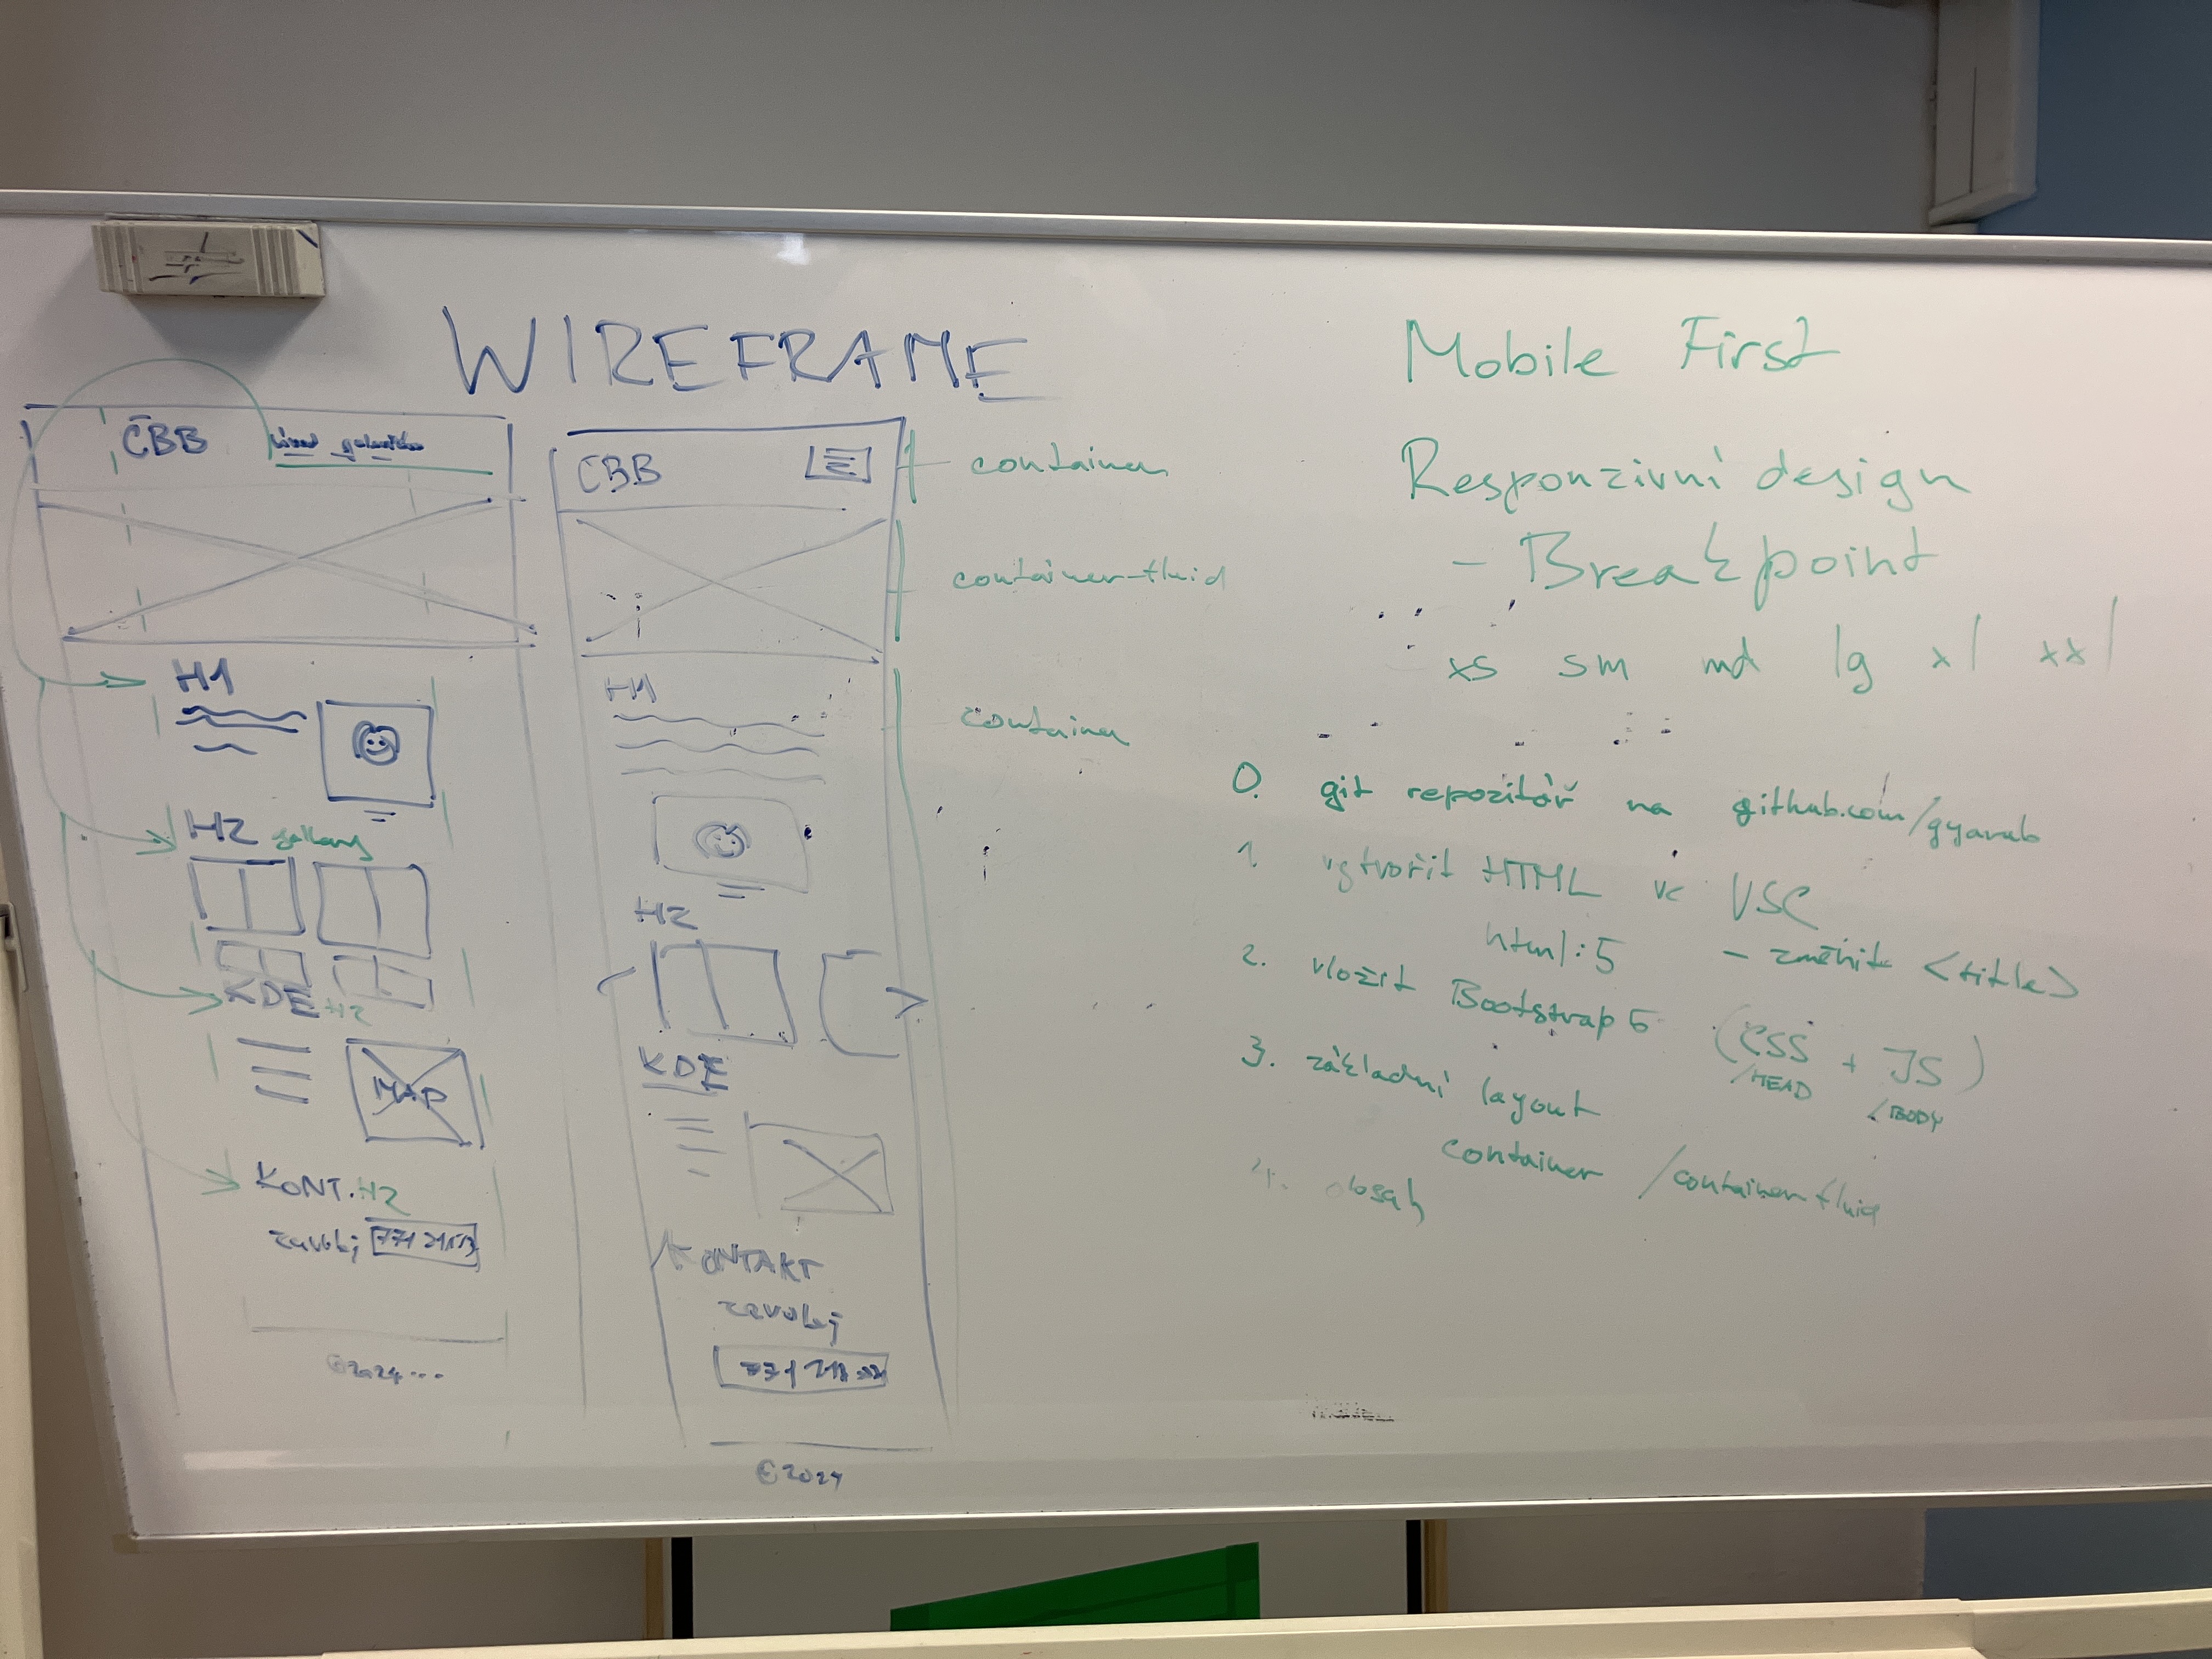 WIREFRAME
ČBB
H1
H2 gallery
KDE H2
MAP
KONT. H2
zavolej
©2024...
ČBB
H1
H2
KDE
KONTAKT
zavolej
©2024
container
container-fluid
container
Mobile First
Responzivní design
- Breakpoint
xs sm md lg xl xxl
0. git repozitář na github.com/gyarab
1. vytvořit HTML ve VSC
html:5 - změnit <title>
2. vložit Bootstrap 5 (CSS + JS)
/HEAD
/BODY
3. základní layout
container / container-fluid
4. obsah